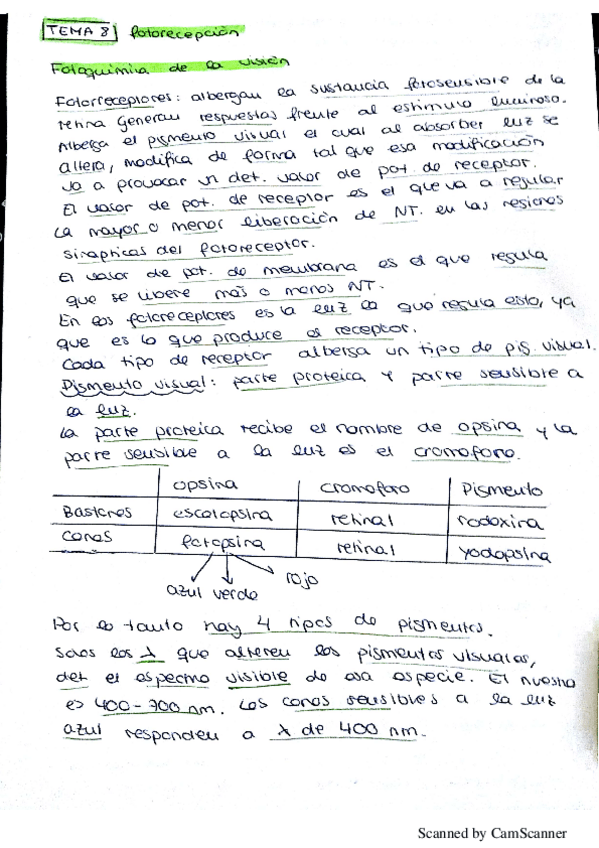 TEMA 8 fotorecepción
Fotoquímica de la visión
Fotorreceptores: albergan la sustancia fotosensible de la
retina Generan respuestas frente al estímulo luminoso.
Alberga el pigmento visual el cual al absorber luz se
altera, modifica de forma tal que esa modificación
va a provocar un det. valor de pot. de receptor.
El valor de pot. de receptor es el que va a regular
la mayor o menor liberación de NT. en las regiones
sinapticas del fotoreceptor.
El valor de pot. de membrana es el que regula
que se libere más o menos NT.
En los fotoreceptores es la luz la que regula esto, ya
que es lo que produce el receptor.
Cada tipo de receptor alberga un tipo de pig. visual.
Pigmento visual: parte proteica y parte sensible a
la luz.
la parte proteica recibe el nombre de opsina y la
parte sensible a la luz es el cromofono.
opsina cromoforo Pigmento
Bastones escotopsina retinal rodoxina
Conos fotopsina retinal yodopsina
azul verde rojo
Por lo tanto hay 4 tipos de pigmentos.
Solos los λ que alteren los pigmentos visuales,
det el espectro visible de esa especie. El nuestro
es 400-700 nm. Los conos sensibles a la luz
azul responden a λ de 400 nm.
Scanned by CamScanner